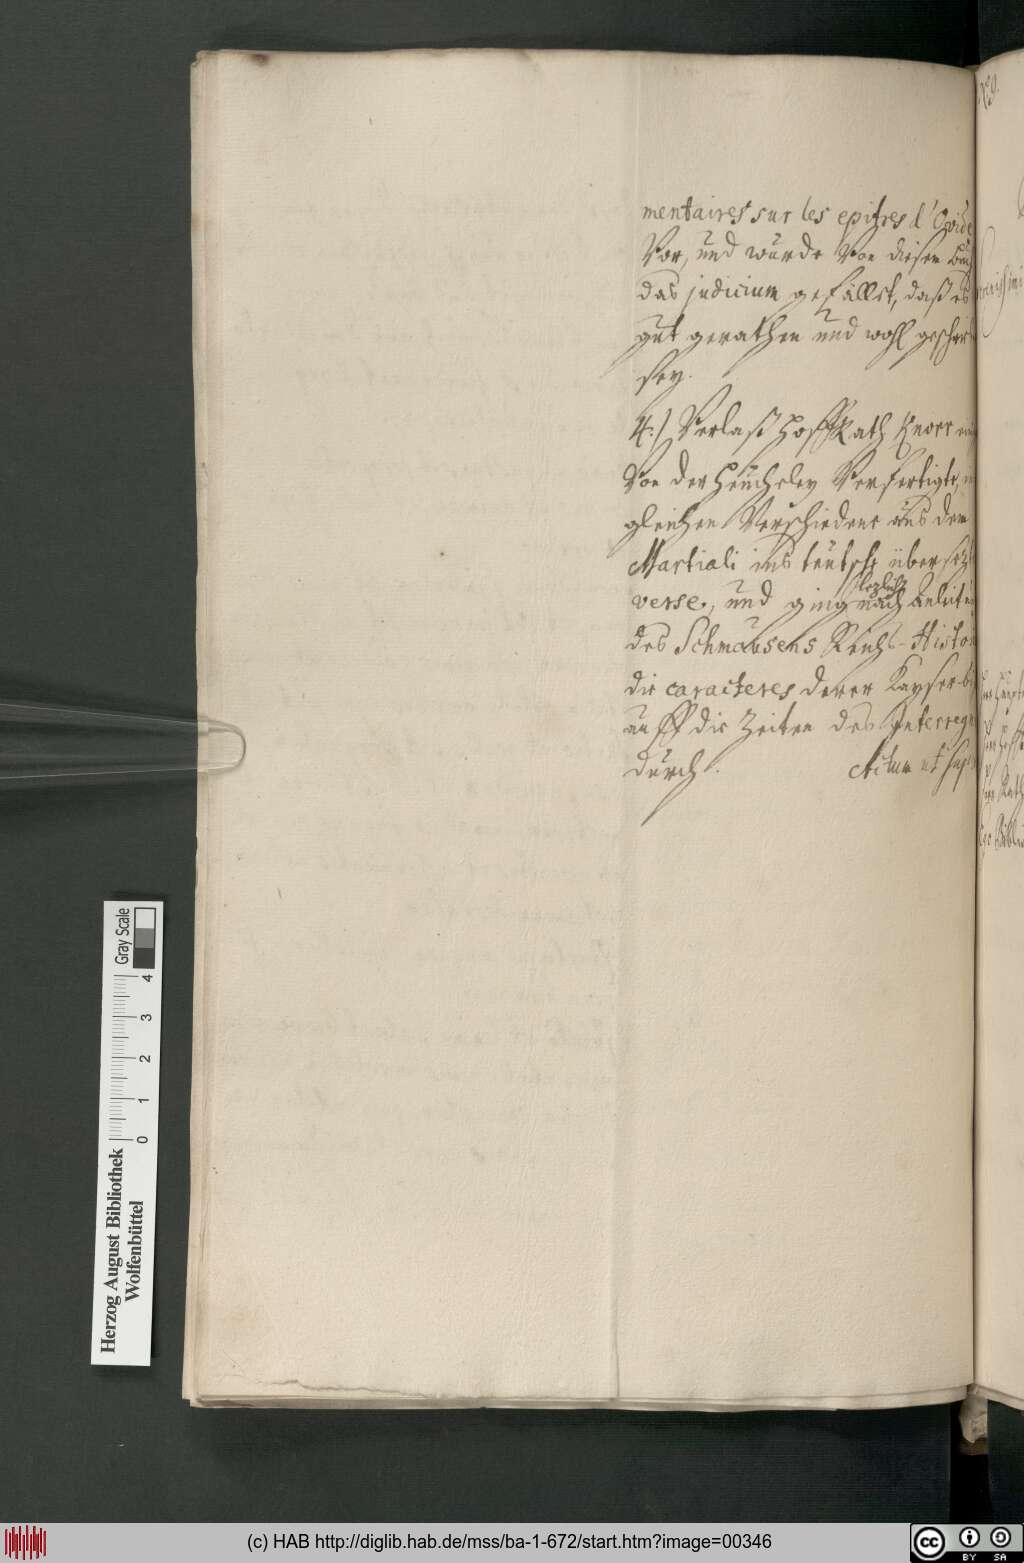 mentaires sur les epitres d'Ovide
vor, und wurde von diesem Buch
das judicium gefället, daß es
gut gerathen und wohl geschrie
sey.
4.) Verlaß Hoff Rath Knorr ein
von der Heucheley verfertigte, in
gleichen verschiedene aus dem
Martiali ins teutsche übersezt
lezlich
verse, und ging nach Anleitu
des Schmausens Reichs-Histor
die caracteres derer Kayser bi
auff die Zeiten des Interregn
durch. Actum ut sup
Gray Scale
4
3
2
1
0
Herzog August Bibliothek
Wolfenbüttel
(c) HAB http://diglib.hab.de/mss/ba-1-672/start.htm?image=00346
cc BY SA